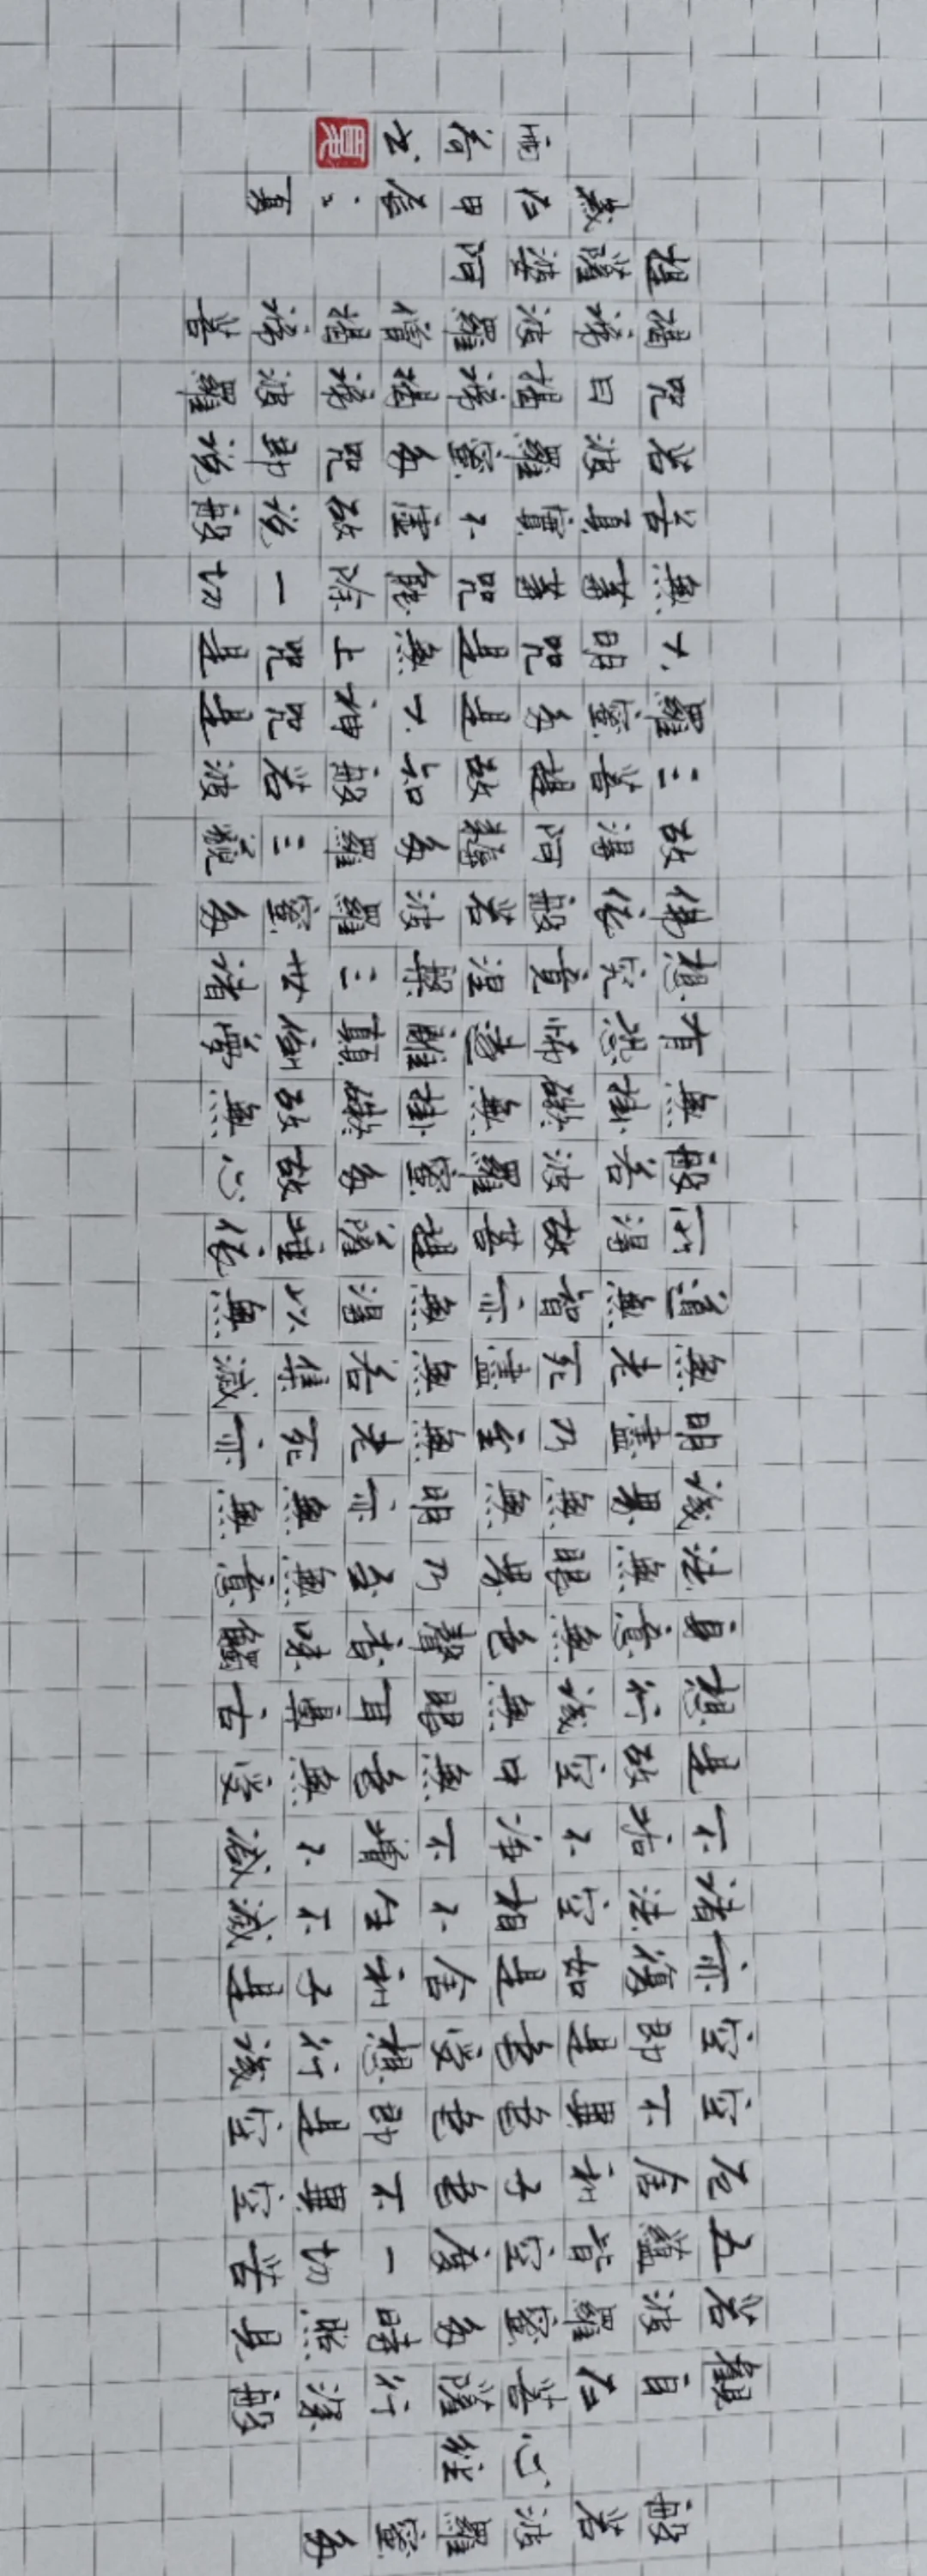 般若波羅蜜多
心經
觀自在菩薩行深般
若波羅蜜多時照見
五蘊皆空度一切苦
厄舍利子色不異空
空不異色色即是空
空即是色受想行識
亦復如是舍利子是
諸法空相不生不滅
不垢不淨不增不減
是故空中無色無受
想行識無眼耳鼻舌
身意無色聲香味觸
法無眼界乃至無意
識界無無明亦無無
明盡乃至無老死亦
無老死盡無苦集滅
道無智亦無得以無
所得故菩提薩埵依
般若波羅蜜多故心
無掛礙無掛礙故無
有恐怖遠離顛倒夢
想究竟涅槃三世諸
佛依般若波羅蜜多
故得阿耨多羅三藐
三菩提故知般若波
羅蜜多是大神咒是
大明咒是無上咒是
無等等咒能除一切
苦真實不虛故說般
若波羅蜜多咒即說
咒曰揭諦揭諦波羅
揭諦波羅僧揭諦菩
提薩婆阿
歲在甲之夏
雨荷书